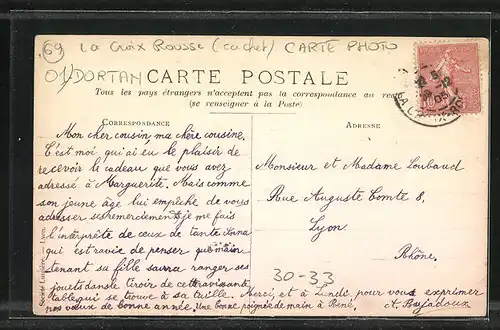 69 La Croix Rousse (cachet) CARTE PHOTO
01/DORTAN
CARTE POSTALE
Tous les pays étrangers n'acceptent pas la correspondance au
(se renseigner à la Poste)
CORRESPONDANCE
ADRESSE
Mon cher cousin, ma chère cousine.
C'est moi, qui ai eu le plaisir de
recevoir le cadeau que vous avez
adressé à Marguerite. Mais comme
son jeune âge lui empêche de vous
adresser ses remerciements je me fais
l'interprète de ceux de tante
qui est ravie de penser que main
tenant sa fille saura ranger ses
jouets dans le tiroir de cette ravissante
table qui se trouve à sa taille. Merci, et à Lundi pour vous exprimer
nos vœux de bonne année. Une bonne poignée de main à René. A. Bajadoux
Monsieur et Madame Loubaud
Rue Auguste Comte 8,
Lyon
Rhône.
30-33
Société Lumière - Lyon
10
05